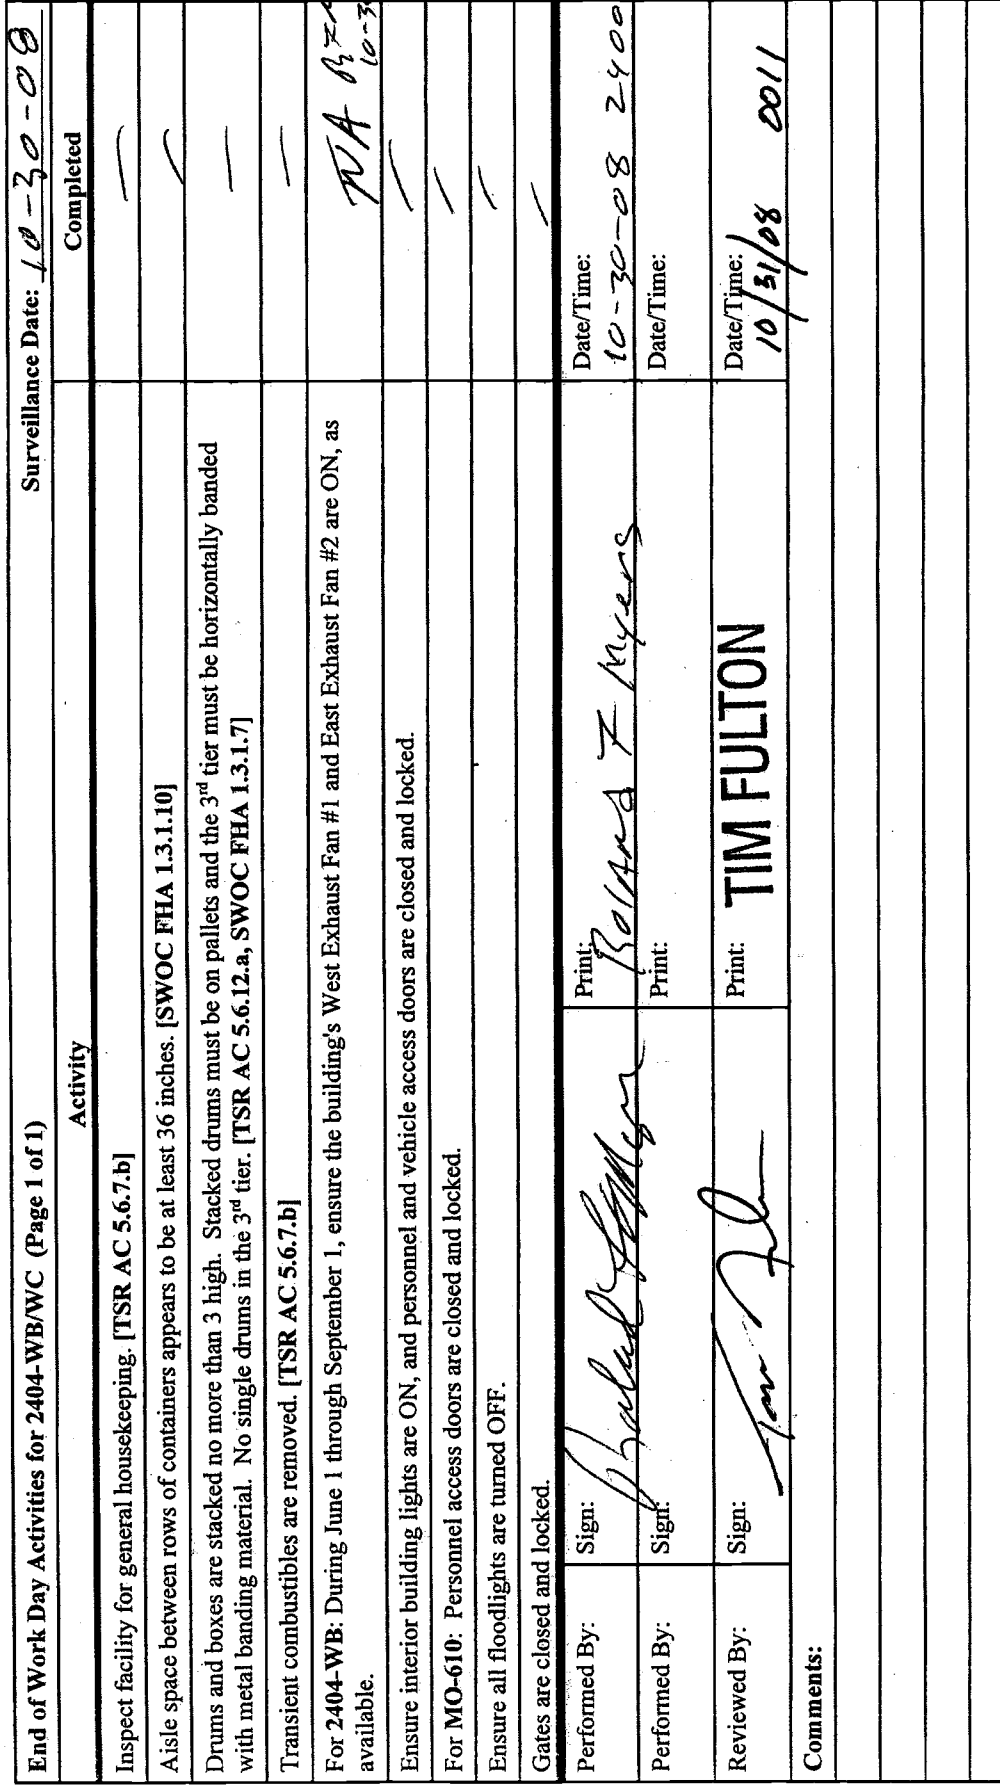 End of Work Day Activities for 2404-WB/WC (Page 1 of 1) Surveillance Date: 10-30-08
Activity Completed
Inspect facility for general housekeeping. [TSR AC 5.6.7.b] —
Aisle space between rows of containers appears to be at least 36 inches. [SWOC FHA 1.3.1.10] —
Drums and boxes are stacked no more than 3 high. Stacked drums must be on pallets and the 3rd tier must be horizontally banded
with metal banding material. No single drums in the 3rd tier. [TSR AC 5.6.12.a, SWOC FHA 1.3.1.7] —
Transient combustibles are removed. [TSR AC 5.6.7.b] —
For 2404-WB: During June 1 through September 1, ensure the building's West Exhaust Fan #1 and East Exhaust Fan #2 are ON, as
available. NA 10-3
Ensure interior building lights are ON, and personnel and vehicle access doors are closed and locked. —
For MO-610: Personnel access doors are closed and locked. —
Ensure all floodlights are turned OFF. —
Gates are closed and locked. —
Performed By: Sign: Print: Roland F Myers Date/Time: 10-30-08 2400
Performed By: Sign: Print: Date/Time:
Reviewed By: Sign: Tim Fulton Print: TIM FULTON Date/Time: 10/31/08 0011
Comments: